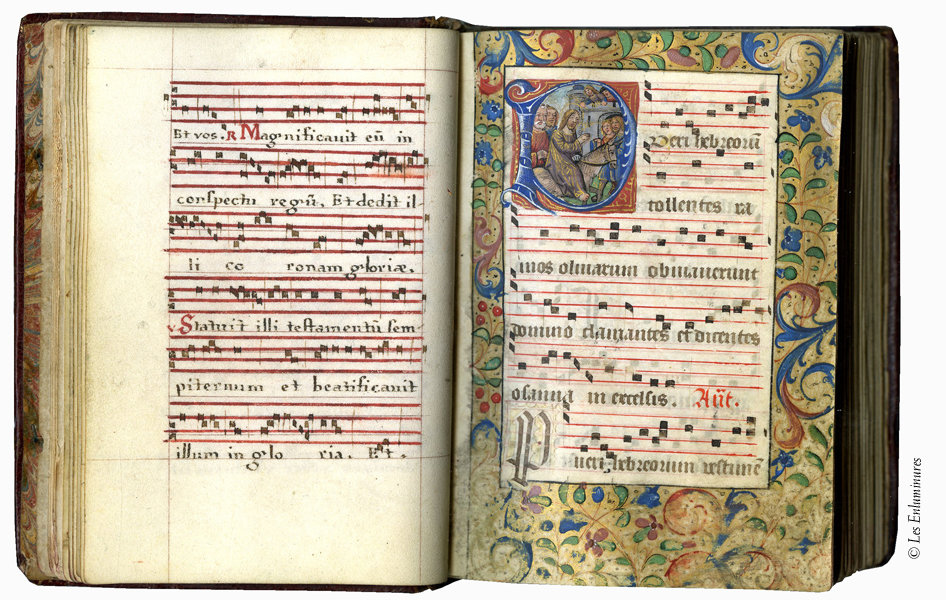 Et vos. R Magnificavit eū in
conspectu regū, Et dedit il-
li co ronam gloriæ.
v Statuit illi testamentū sem-
piternum et beatificavit
illum in glo ria. Et.
Pueri hebreorū
tollentes ra
mos olivarum obviaverunt
domino clamantes et dicentes
osanna in excelsis. Añt.
Pueri hebreorum vestimē
© Les Enluminures